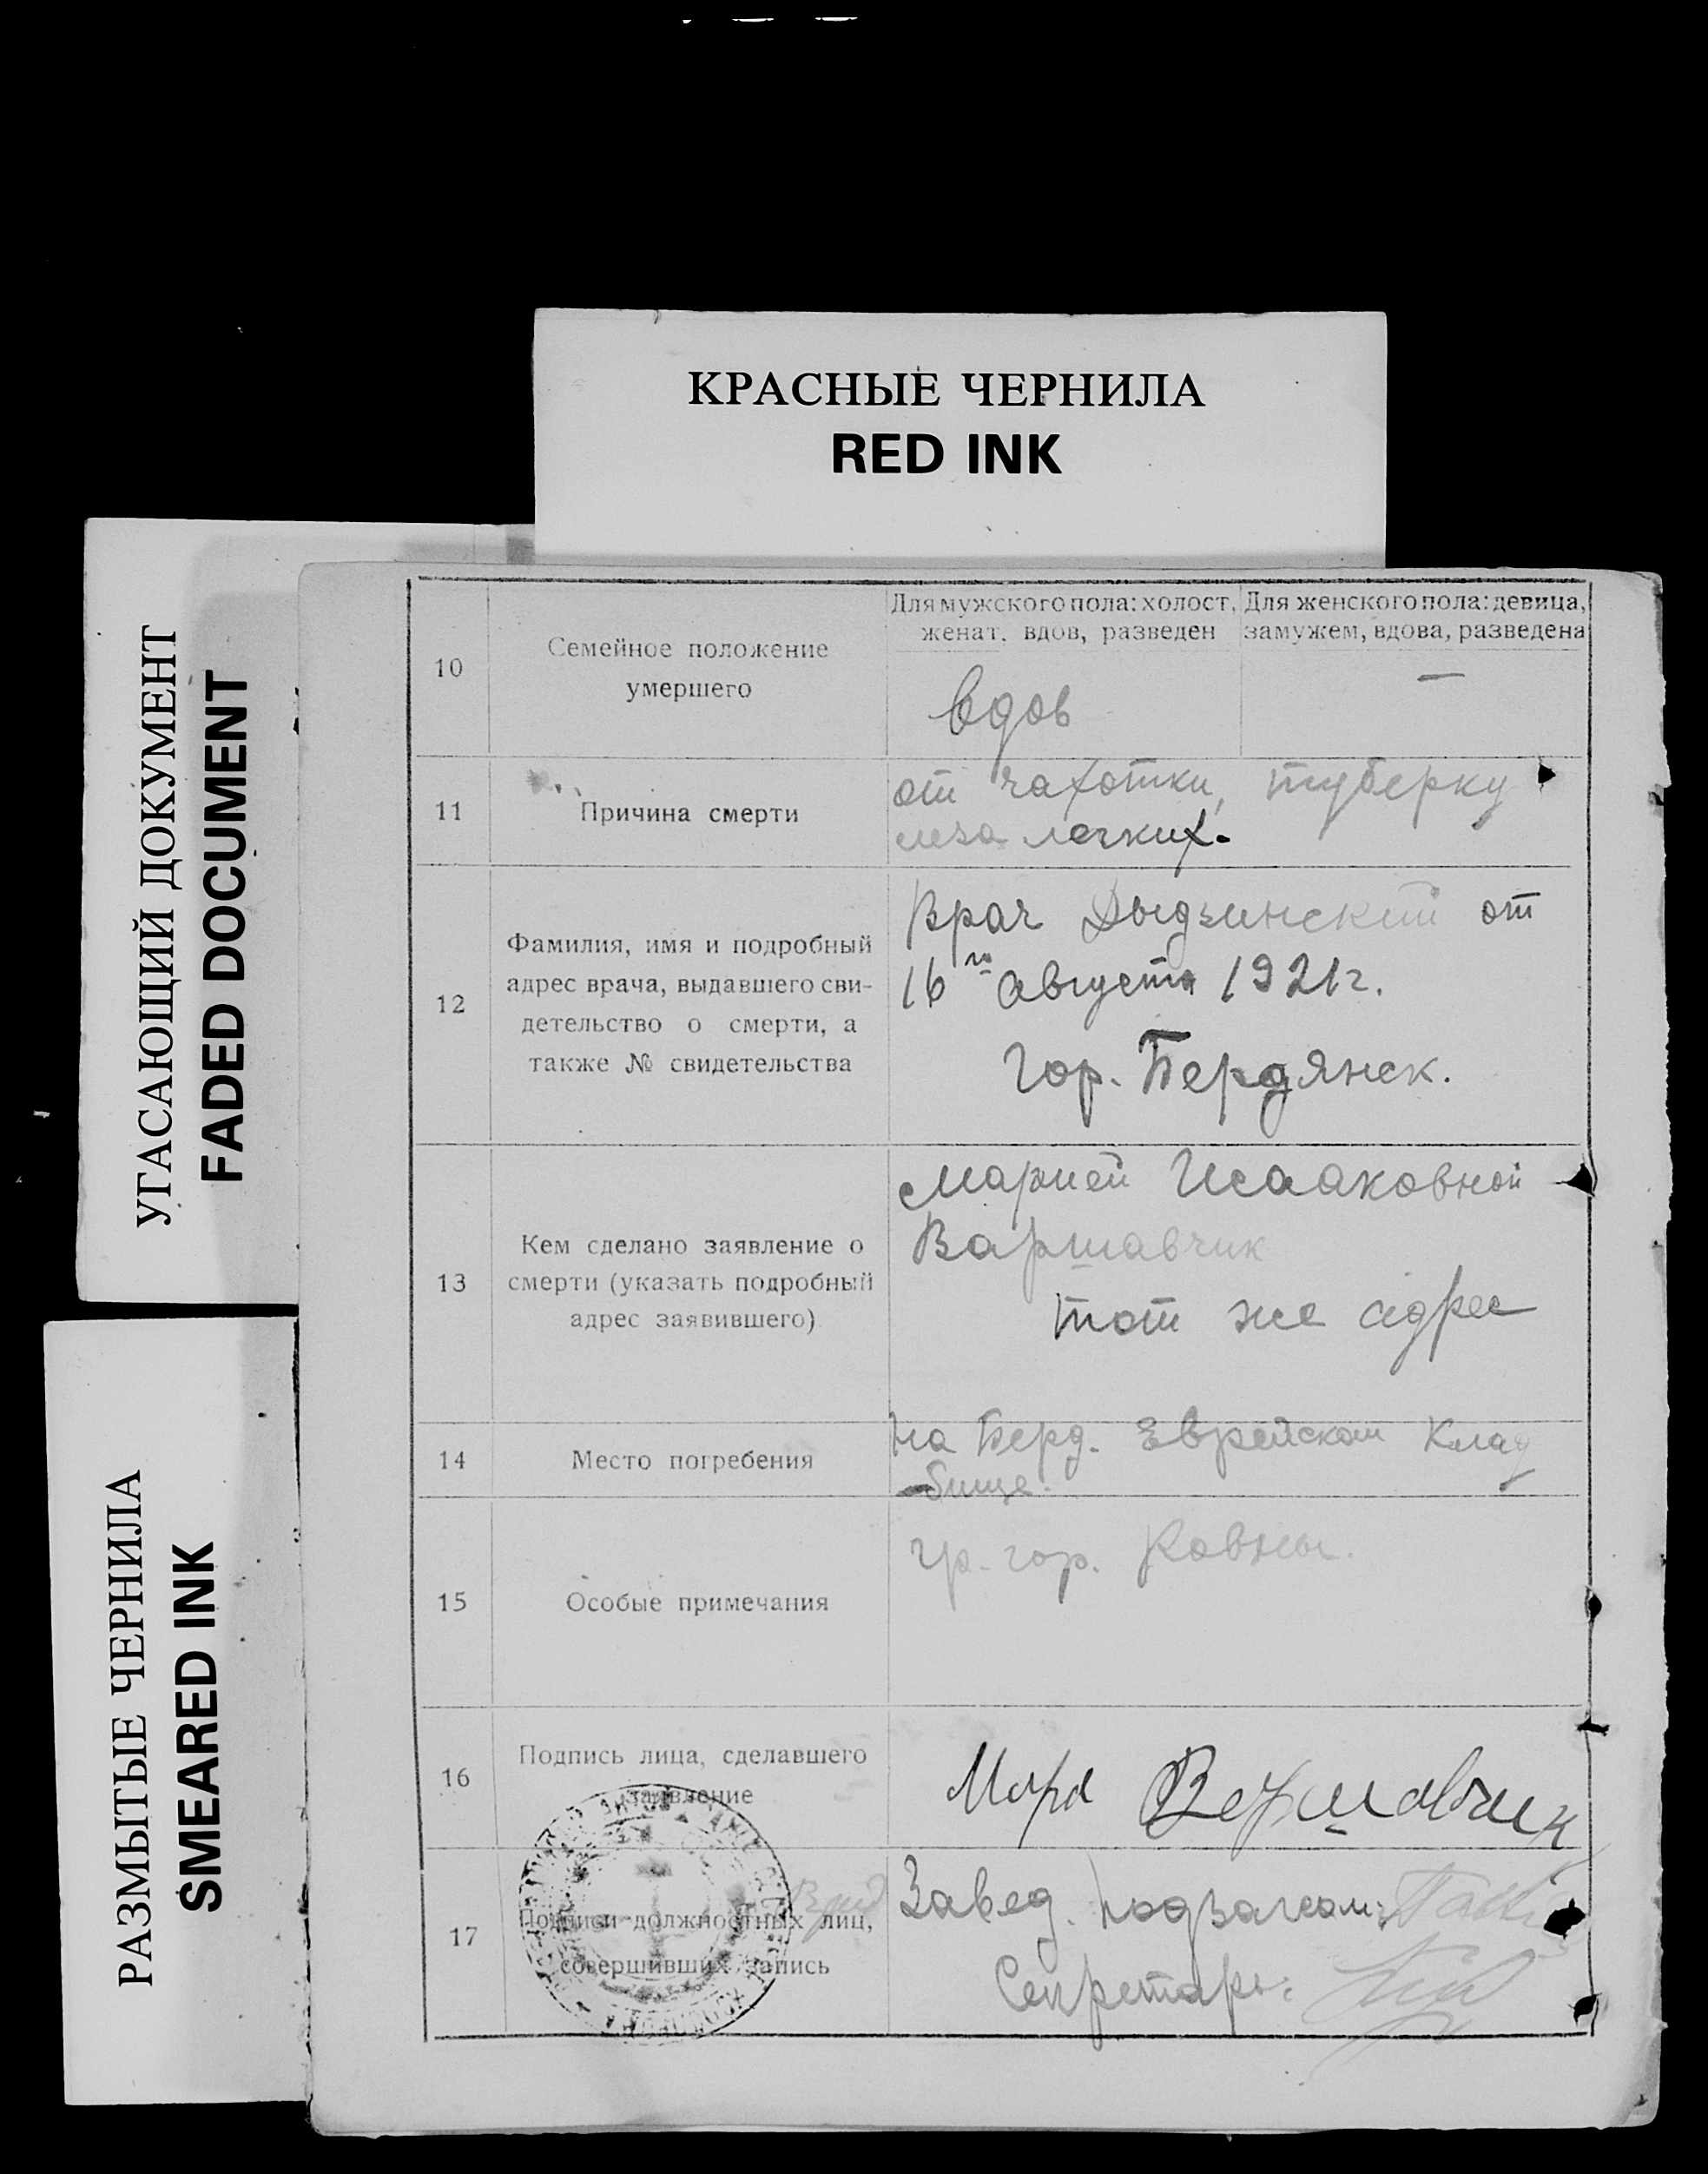 КРАСНЫЕ ЧЕРНИЛА
RED INK
УГАСАЮЩИЙ ДОКУМЕНТ
FADED DOCUMENT
РАЗМЫТЫЕ ЧЕРНИЛА
SMEARED INK
10
Семейное положение
умершего
Для мужского пола: холост,
женат, вдов, разведен
Для женского пола: девица,
замужем, вдова, разведена
вдов
—
11
Причина смерти
от чахотки, туберку
леза легких.
12
Фамилия, имя и подробный
адрес врача, выдавшего сви-
детельство о смерти, а
также № свидетельства
Врач Дыдзинский от
16го августа 1921 г.
Гор. Бердянск.
13
Кем сделано заявление о
смерти (указать подробный
адрес заявившего)
Марией Исааковной
Варшавчик
тот же адрес
14
Место погребения
на Берд. Еврейском Клад
бище.
15
Особые примечания
гр. гор. Ковны.
16
Подпись лица, сделавшего
заявление
Мира Варшавчик
17
Подписи должностных лиц,
совершивших запись
Завед. подзагсом:
Секретарь: